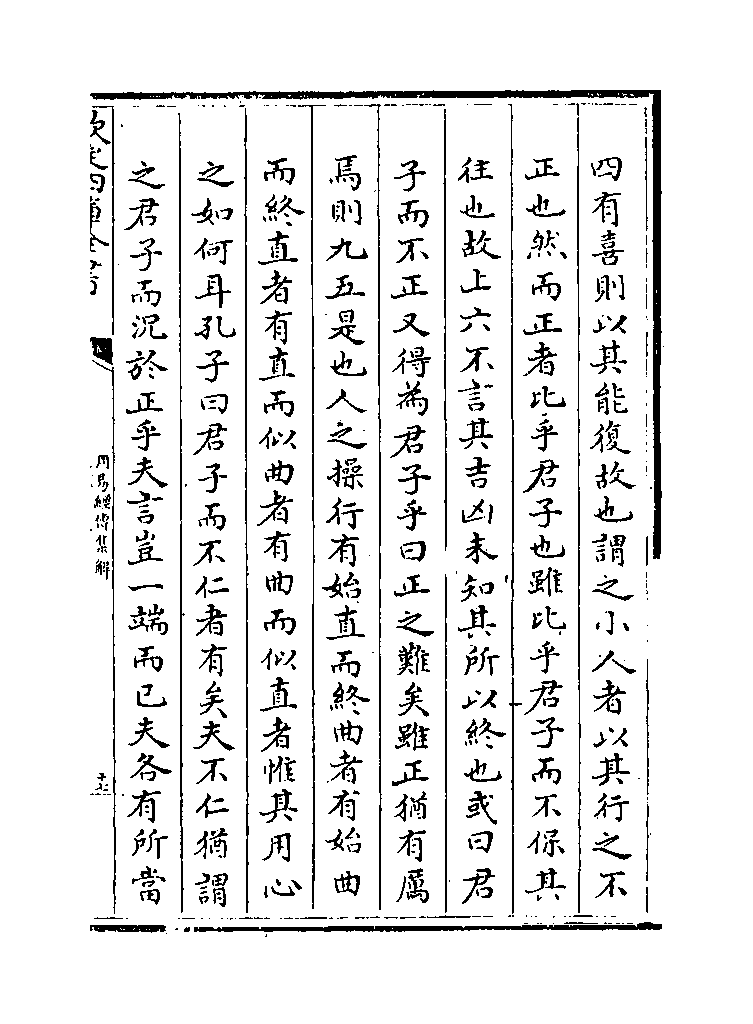 四有喜則以其能復故也謂之小人者以其行之不
正也然而正者比乎君子也雖比乎君子而不保其
往也故上六不言其吉凶未知其所以終也或曰君
子而不正又得為君子乎曰正之難矣雖正猶有厲
焉則九五是也人之操行有始直而終曲者有始曲
而終直者有直而似曲者有曲而似直者惟其用心
之如何耳孔子曰君子而不仁者有矣夫不仁猶謂
之君子而況於正乎夫言豈一端而已夫各有所當
欽定四庫全書
周易經傳集解
十七